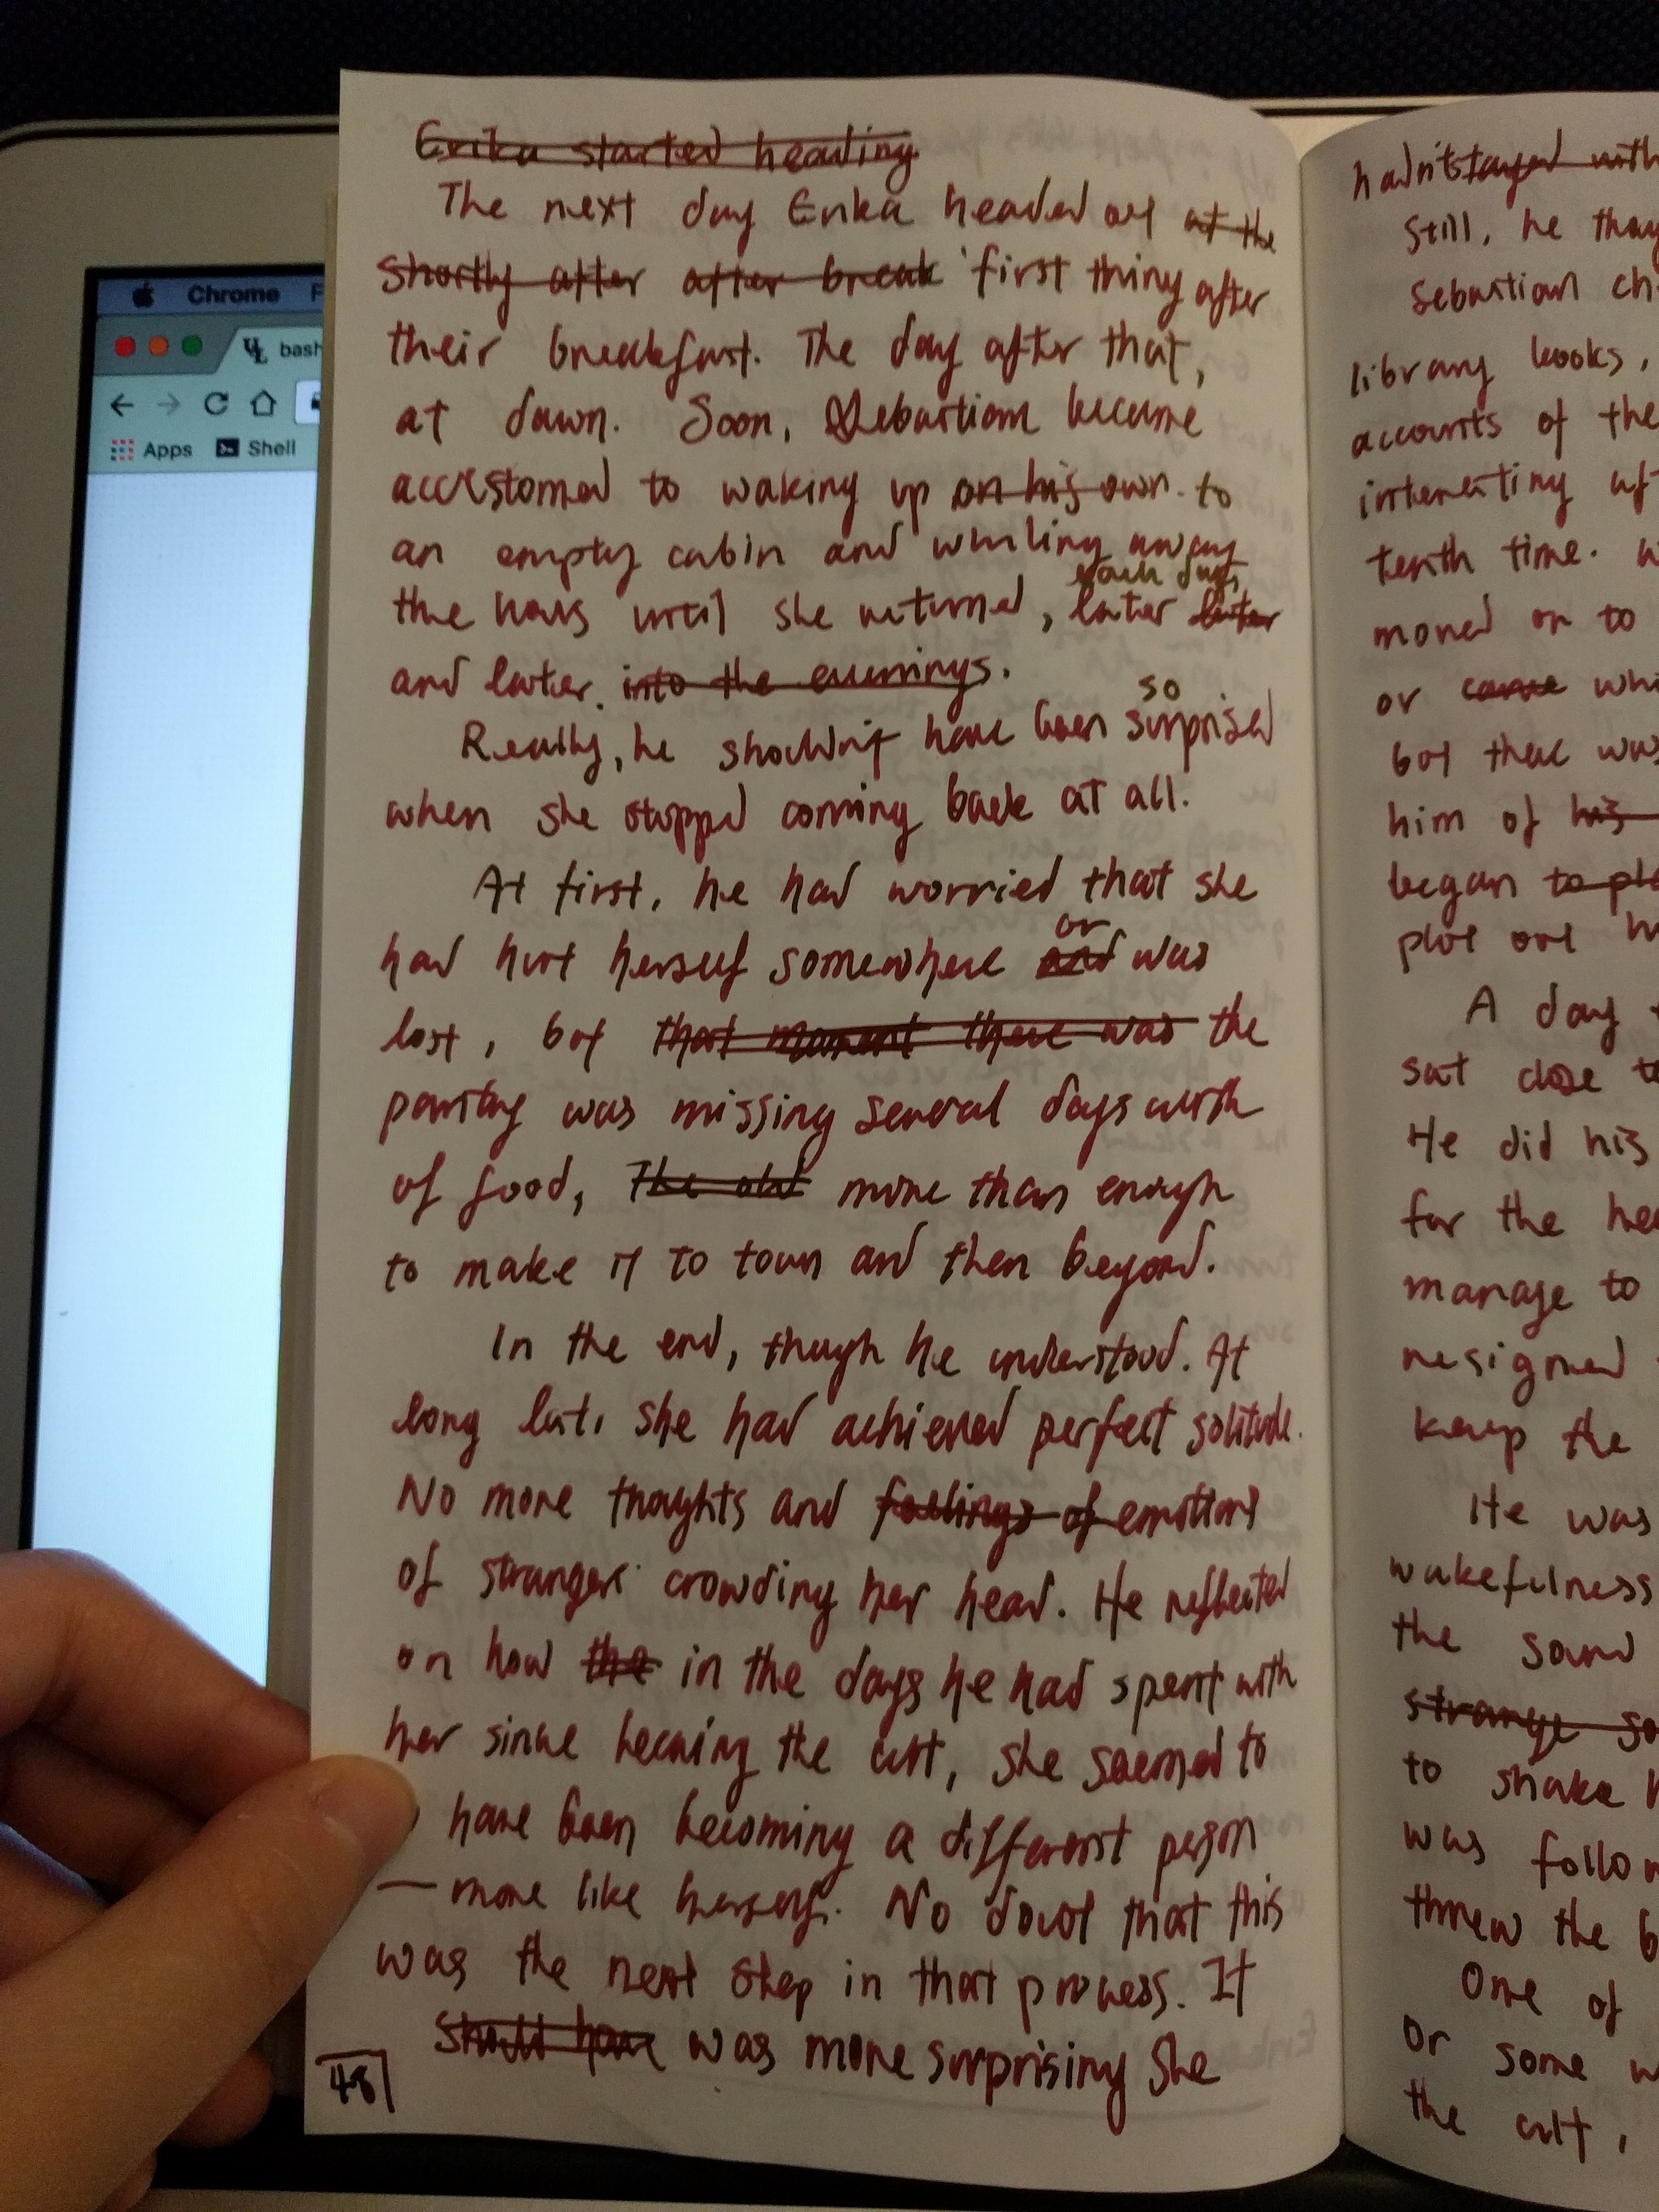 Chrome F
bash
Apps Shell
Erika started heading
The next day Erika headed off at the
shortly after after break first thing after
their breakfast. The day after that,
at dawn. Soon, Sebastian became
accustomed to waking up on his own. to
an empty cabin and whiling away
each day,
the hours until she returned, later later
and later. into the evenings.
so
Really, he shouldn't have been surprised
when she stopped coming back at all.
At first, he had worried that she
or
had hurt herself somewhere and was
lost, but that moment there was the
pantry was missing several days worth
of food, The old more than enough
to make it to town and then beyond.
In the end, though he understood. At
long last, she had achieved perfect solitude.
No more thoughts and feelings of emotions
of strangers crowding her head. He reflected
on how the in the days he had spent with
her since leaving the cult, she seemed to
have been becoming a different person
— more like herself. No doubt that this
was the next step in that process. It
should have was more surprising she
48
hadn't stayed with
Still, he
Sebastian
library books,
accounts of the
interesting
tenth time.
moved on to
or came
but that was
him of his
began to
plot out
A day
sat close
He did his
for the
manage to
resigned
keep the
He was
wakefulness
the sound
strange
to shake
was
threw the
One of
Or some
the cult,